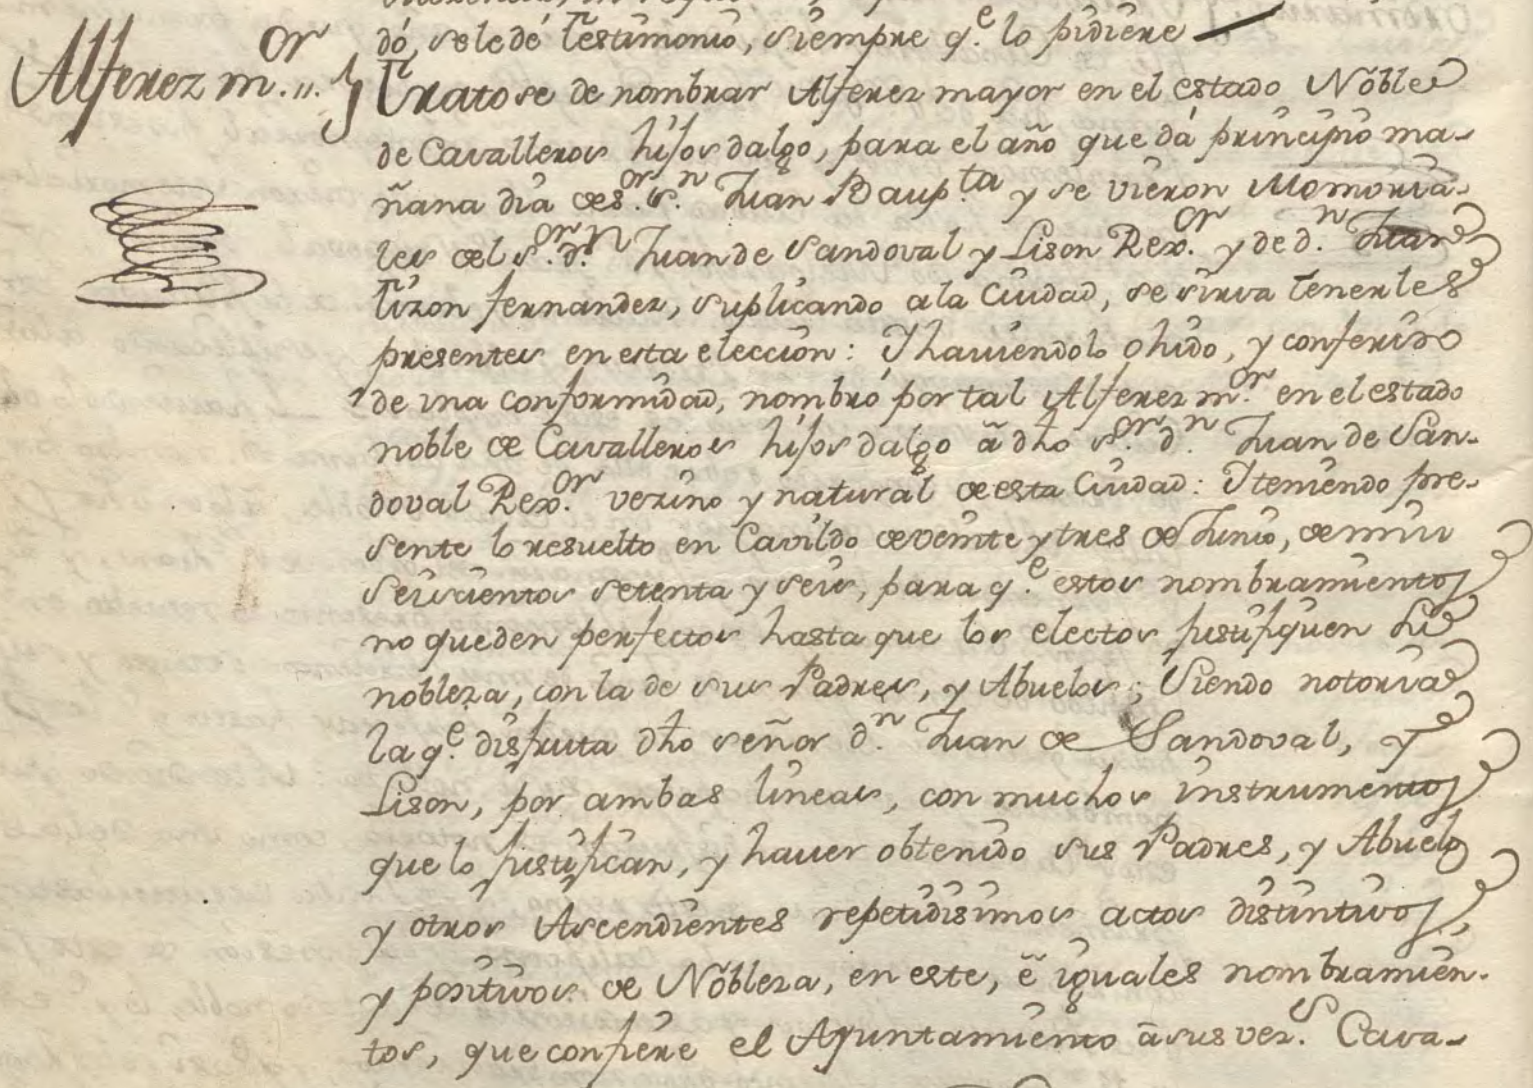 dó, sele dé Testimonio, siempre q.e lo pidiere
Alferez m.or
Tratose de nombrar Alferez mayor en el estado Noble
de Cavalleros hijos dalgo, para el año que dá principio ma-
ñana dia de s.or s.n Juan Baup.ta y se vieron Memoria-
les del s.or d.n Juan de Sandoval y Lison Rex.or y de d.n Juan
Lizon fernandez, suplicando a la Ciudad, se sirva tenerles
presentes en esta eleccion: Y haviendolo ohido, y conferido
de una conformidad, nombró por tal Alferez m.or en el estado
noble de Cavalleros hijos dalgo a dho s.or d.n Juan de San-
doval Rex.or vezino y natural de esta Ciudad: Y teniendo pre-
sente lo resuelto en Cavildo de veinte y tres de Junio, de mil
seiscientos setenta y seis, para q.e estos nombramientos
no queden perfectos hasta que los electos justifiquen su
nobleza, con la de sus Padres, y Abuelos; Siendo notoria
la q.e disfruta dho señor d.n Juan de Sandoval, y
Lison, por ambas lineas, con muchos instrumentos
que lo justifican, y haver obtenido sus Padres, y Abuelos
y otros Ascendientes repetidisimos actos distintivos,
y positivos de Nobleza, en este, é iguales nombramien-
tos, que confiere el Ayuntamiento a sus vez.s Cava-